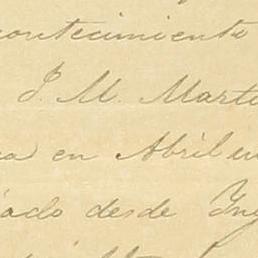 contecimiento
J. M. Marti
a en Abril
ado desde Ing